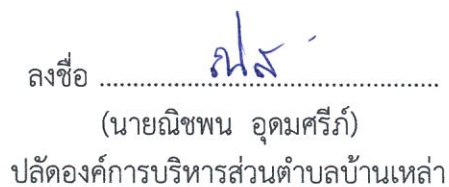 ลงชื่อ ........................................................
(นายณิชพน อุดมศรีภ์)
ปลัดองค์การบริหารส่วนตำบลบ้านเหล่า